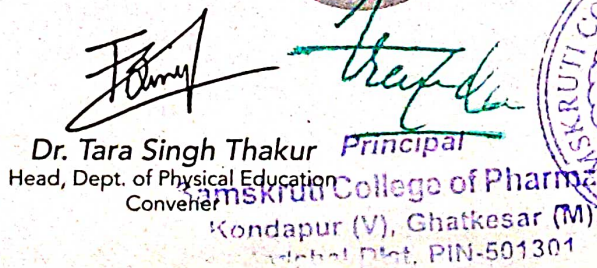 Dr. Tara Singh Thakur
Head, Dept. of Physical Education
Convener
Principal
Samskruti College of Pharma
Kondapur (V), Ghatkesar (M)
Dist, PIN-501301
SKRUTI CO